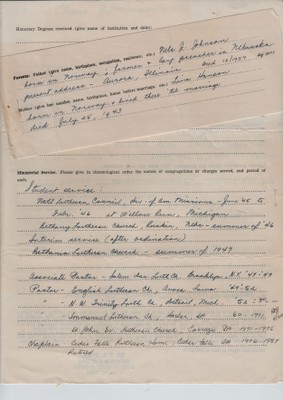 Honorary Degrees received (give name of institution and date)
Parents: Father (give name, birthplace, occupation, residence, etc.) Nels J. Johnson
born in Norway, a farmer & lay preacher in Nebraska
present address - Aurora, Illinois Died 12/1957
Mother (give last maiden name, birthplace, home before marriage, etc.) Hanson
born in Norway & lived there til marriage
died July 25, 1943
Ministerial Service. Please give in chronological order the names of congregations or charges served, and period of each.
Student service:
Natl Lutheran Council, Div. of Am Missions - June 45 to
Febr. '46 at Willow Run, Michigan
Bethany Lutheran Church, Ruskin, Nebr - summer of '46
Interim service (after ordination)
Bethania Lutheran Church - summer of 1947
Associate Pastor - Salem Dan. Luth Ch. Brooklyn, N.Y. '47-'49
Pastor - English Lutheran Ch, Iowa '49-'52
" - N.W. Trinity Luth Ch, Detroit, Mich. '52-
" - Immanuel Lutheran Ch, 60-1971
St. John Ev. Lutheran Church, 1971-1976
Chaplain Cedar Falls Lutheran Home - Cedar Falls IA 1976-1987
Retired